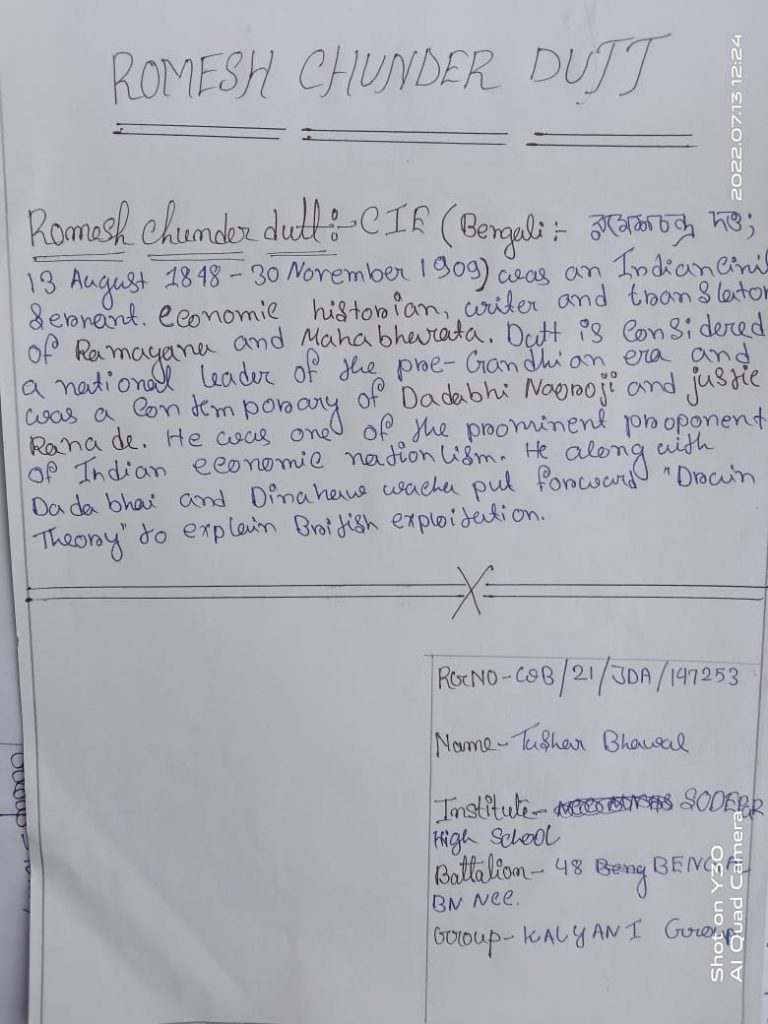 ROMESH CHUNDER DUTT
Romesh chunder dutt:- CIE (Bengali:- রমেশচন্দ্র দত্ত;
13 August 1848 - 30 November 1909) was an Indian civil
Sernant. economic historian, writer and translator
of Ramayana and Mahabharata. Dutt is considered
a national leader of the pre-Gandhian era and
was a contemporary of Dadabhi Naoroji and justie
Rana de. He was one of the prominent proponent
of Indian economic nationlism. He along with
Dadabhai and Dinahaw wacha put forward "Drain
Theory" to explain British exploitation.
RGNO-COB/21/JDA/147253
Name- Tushar Bhawal
Institute- SODEPR
High School
Battalion- 48 Beng BENGAL
BN Ncc.
Group- KALYANI Group
2022.07.13 12:24
Shot on Y30
AI Quad Camera